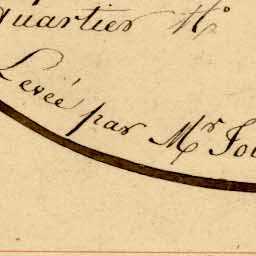 quartier
Levée par Mr